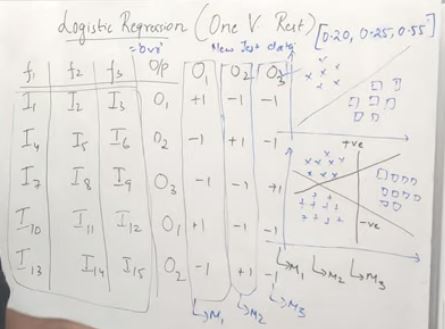 Logistic Regression (One V. Rest)
= 'ovr'
New Test data [0.20, 0.25, 0.55]
f1 f2 f3 O/P O1 O2 O3
I1 I2 I3 O1 +1 -1 -1
I4 I5 I6 O2 -1 +1 -1
I7 I8 I9 O3 -1 -1 +1
I10 I11 I12 O1 +1 -1 -1
I13 I14 I15 O2 -1 +1 -1
M1 M2 M3
+ve
-ve
M1 M2 M3